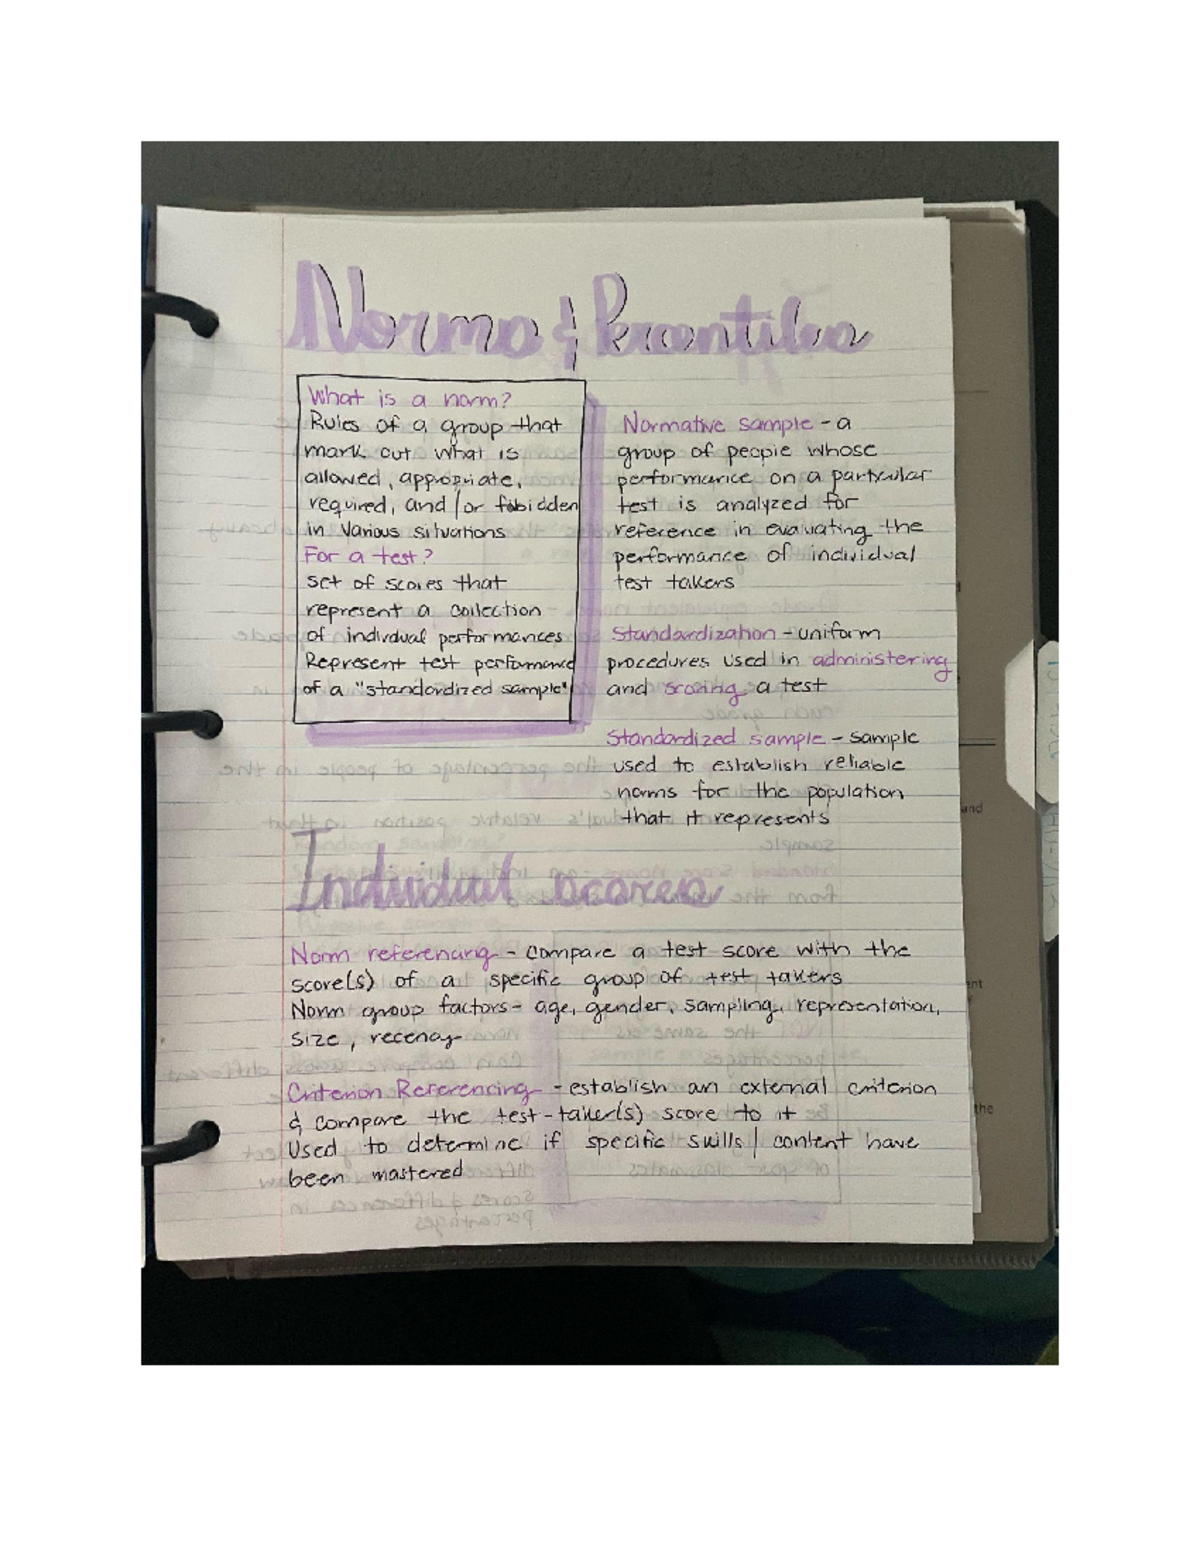 Norms & Percentiles
What is a norm?
Rules of a group that
mark out what is
allowed, appropriate,
required, and/or fobidden
in various situations
For a test?
set of scores that
represent a collection
of indivdual performances
Represent test performance
of a "standardized sample"
Normative sample - a
group of people whose
performance on a particular
test is analyzed for
reference in evaluating the
performance of individual
test takers
Standardization - uniform
procedures used in administering
and scoring a test
Standardized sample - sample
used to establish reliable
norms for the population
that it represents
Individual scores
Norm referencing - compare a test score with the
score(s) of a specific group of test takers
Norm group factors - age, gender, sampling, representation,
size, recency
Criterion Referencing - establish an external criterion
& compare the test-taker(s) score to it
Used to determine if specific skills/content have
been mastered
and
the